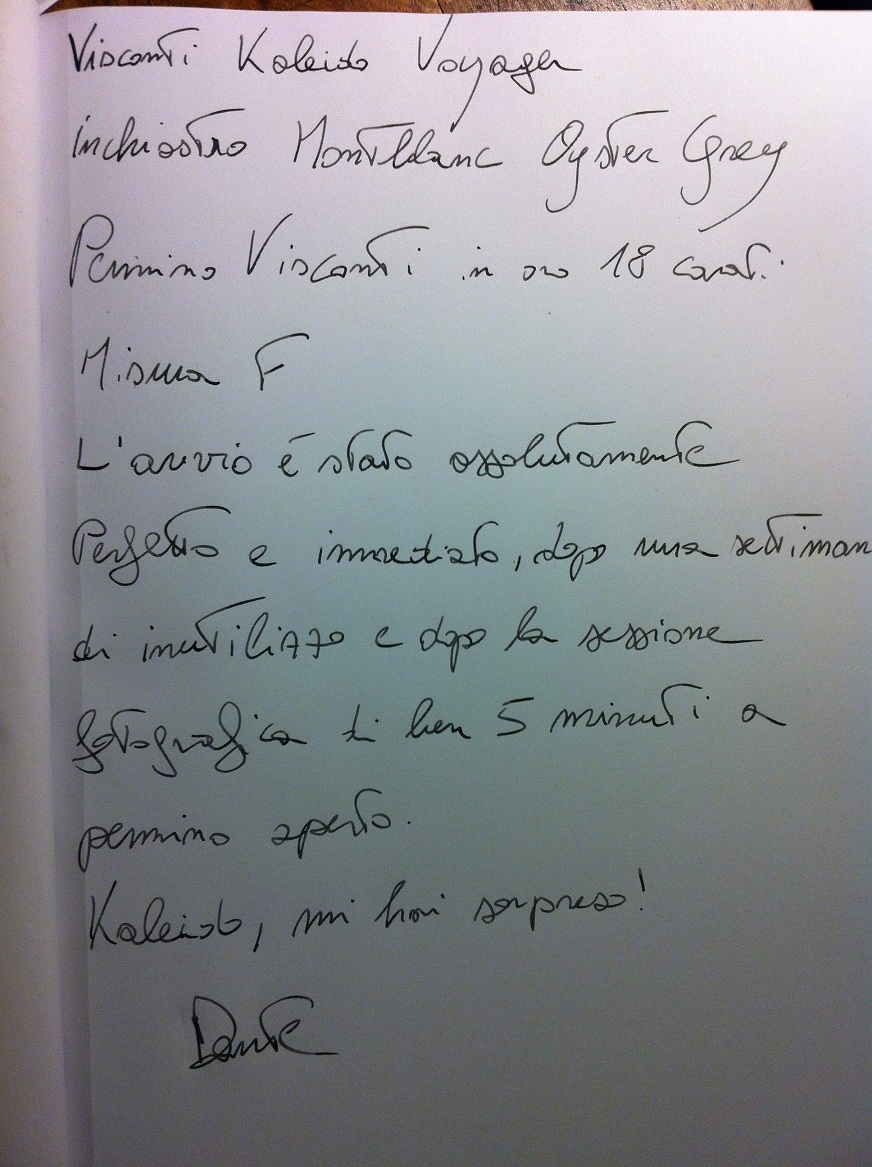 Visconti Kaleido Voyager
Inchiostro Montblanc Oyster Grey
Pennino Visconti in oro 18 carati
Misura F
L'avvio è stato assolutamente
Perfetto e immediato, dopo una settiman
di inutilizzo e dopo la sessione
fotografica di ben 5 minuti a
pennino aperto.
Kaleido, mi hai sorpreso!
Dante